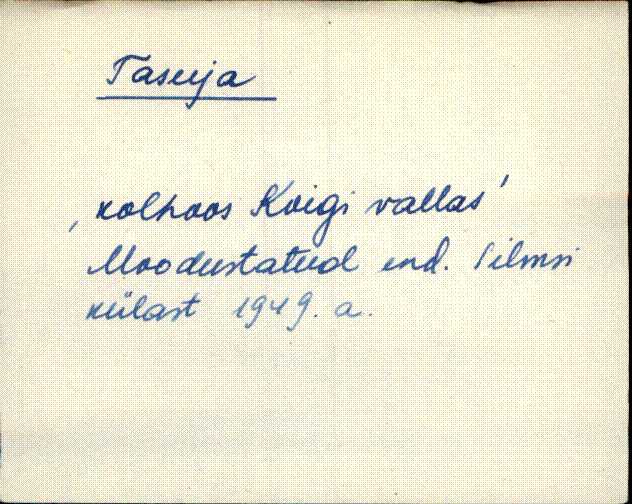 Tasuja
‚kolhoos Koigi vallas’
Moodustatud end. Silmsi
külast 1949. a.